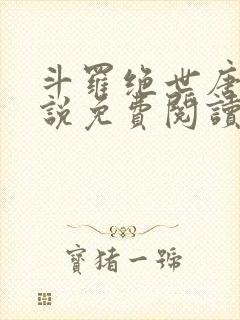 斗羅绝世唐
說免費閱讀
寶猪一號